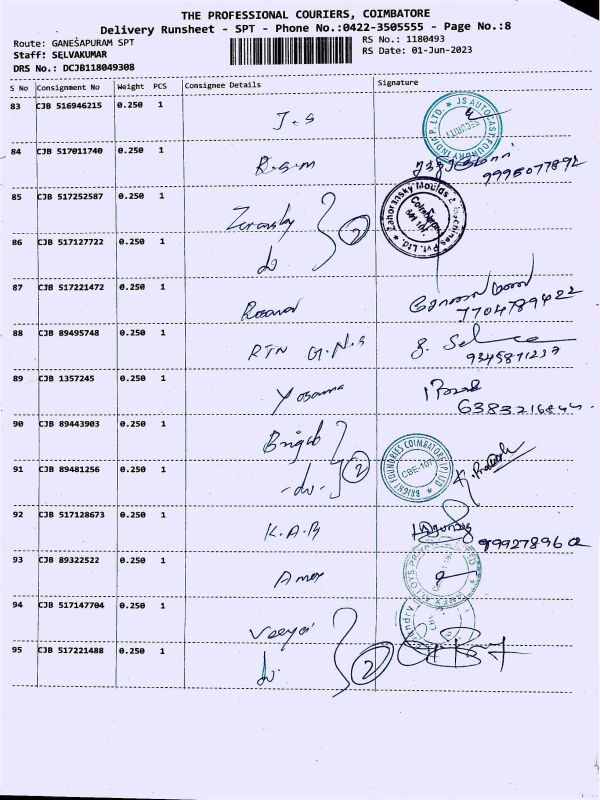 THE PROFESSIONAL COURIERS, COIMBATORE
Delivery Runsheet - SPT - Phone No.:0422-3505555 - Page No.:8
Route: GANESAPURAM SPT
RS No.: 1180493
Staff: SELVAKUMAR
RS Date: 01-Jun-2023
DRS No.: DCJB118049308
S No Consignment No Weight PCS Consignee Details Signature
83 CJB 516946215 0.250 1
J.S
JS AUTOCAST FOUNDRY INDIA P. LTD. SECURITY
84 CJB 517011740 0.250 1
R.S.M
85 CJB 517252587 0.250 1
2
Zahoransky Moulds & Machines Pvt. Ltd.
86 CJB 517127722 0.250 1
do
87 CJB 517221472 0.250 1
7704789422
88 CJB 89495748 0.250 1
RTN G.N.S
9345871237
89 CJB 1357245 0.250 1
90 CJB 89443903 0.250 1
BRIGHT FOUNDRIES COIMBATORE (P) LTD
CBE-107
91 CJB 89481256 0.250 1
-do- 2
K. Prakash
92 CJB 517128673 0.250 1
K.A.R
93 CJB 89322522 0.250 1
Amex
94 CJB 517147704 0.250 1
95 CJB 517221488 0.250 1
do. 2